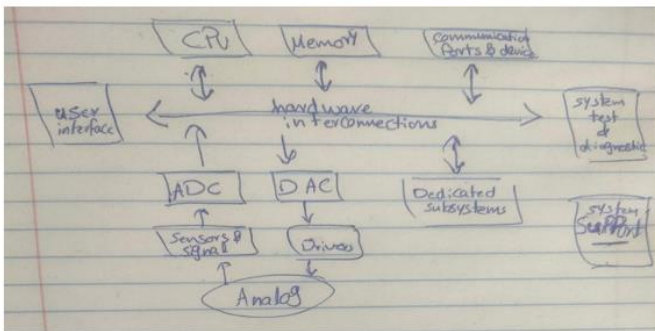 CPU
Memory
Communication
Ports & device
user
interface
hardware
interconnections
system
test
&
diagnostic
ADC
DAC
Dedicated
subsystems
Sensors &
signal
Drives
system
Support
Analog